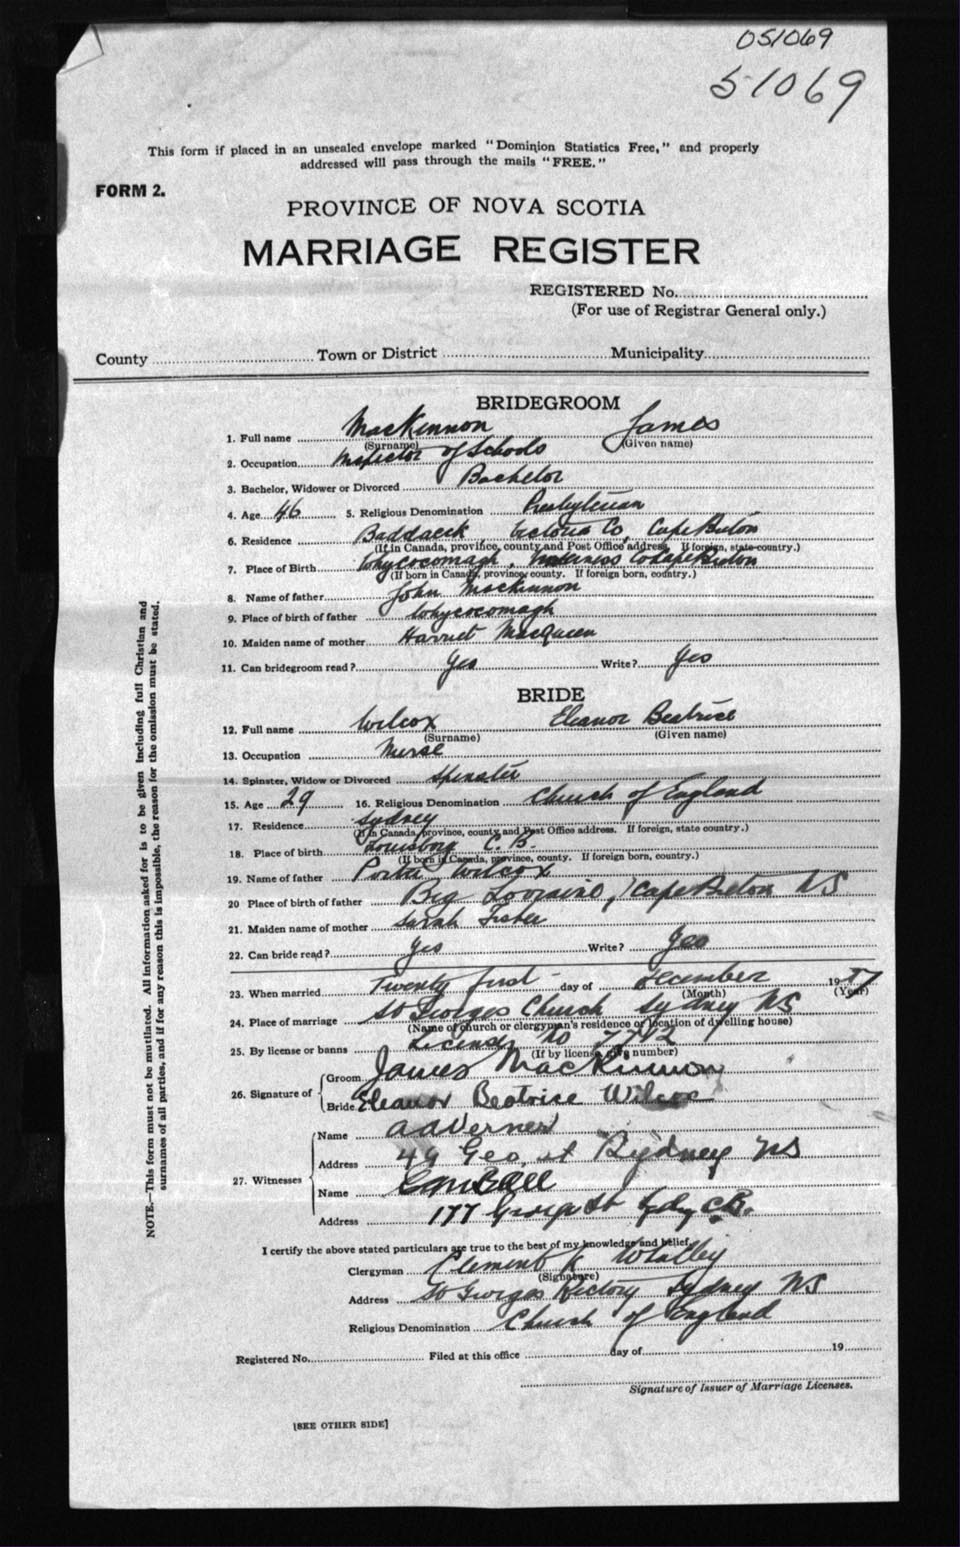 051069
51069
This form if placed in an unsealed envelope marked "Dominion Statistics Free," and properly
addressed will pass through the mails "FREE."
FORM 2.
PROVINCE OF NOVA SCOTIA
MARRIAGE REGISTER
REGISTERED No.
(For use of Registrar General only.)
County Town or District Municipality
BRIDEGROOM
1. Full name MacKinnon James
(Surname) (Given name)
2. Occupation Inspector of Schools
3. Bachelor, Widower or Divorced Bachelor
4. Age 46 5. Religious Denomination Presbyterian
6. Residence Baddaeck Victoria Co, Cape Breton
(If in Canada, province, county and Post Office address. If foreign, state country.)
7. Place of Birth Whycocomagh, Inverness Co Cape Breton
(If born in Canada, province, county. If foreign born, country.)
8. Name of father John MacKinnon
9. Place of birth of father Whycocomagh
10. Maiden name of mother Harriet MacQueen
11. Can bridegroom read? Yes Write? Yes
BRIDE
12. Full name Wilcox Eleanor Beatrice
(Surname) (Given name)
13. Occupation Nurse
14. Spinster, Widow or Divorced Spinster
15. Age 29 16. Religious Denomination Church of England
17. Residence Sydney
(If in Canada, province, county and Post Office address. If foreign, state country.)
18. Place of birth Louisburg C.B.
(If born in Canada, province, county. If foreign born, country.)
19. Name of father Porter Wilcox
20 Place of birth of father Big Lorraine, Cape Breton NS
21. Maiden name of mother Sarah Fisher
22. Can bride read? Yes Write? Yes
23. When married Twenty first day of December 19
(Month) (Year)
24. Place of marriage St Georges Church Sydney NS
(Name of church or clergyman's residence or location of dwelling house)
25. By license or banns License No 7742
(If by license, give number)
26. Signature of Groom James MacKinnon
Bride Eleanor Beatrice Wilcox
27. Witnesses
Name
Address 49 Geo. st Sydney NS
Name
Address 177 George St Sydney C.B.
I certify the above stated particulars are true to the best of my knowledge and belief,
Clergyman Clement K Whalley
(Signature)
Address St Georges Rectory Sydney NS
Religious Denomination Church of England
Registered No. Filed at this office day of 19
Signature of Issuer of Marriage Licenses.
[SEE OTHER SIDE]
NOTE.—This form must not be mutilated. All information asked for is to be given including full Christian and
surnames of all parties, and if for any reason this is impossible, the reason for the omission must be stated.